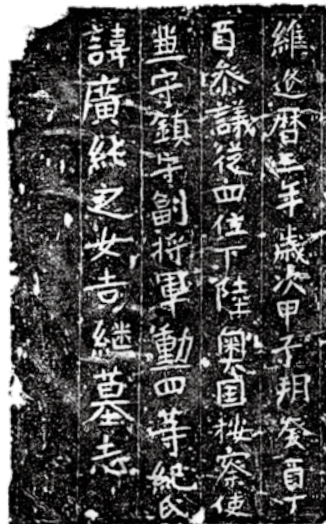 維延暦三年歳次甲子朔癸酉丁
酉参議從四位下陸奥国桉察使
兼守鎮守副将軍勲四等紀氏
諱廣純之女吉継墓志